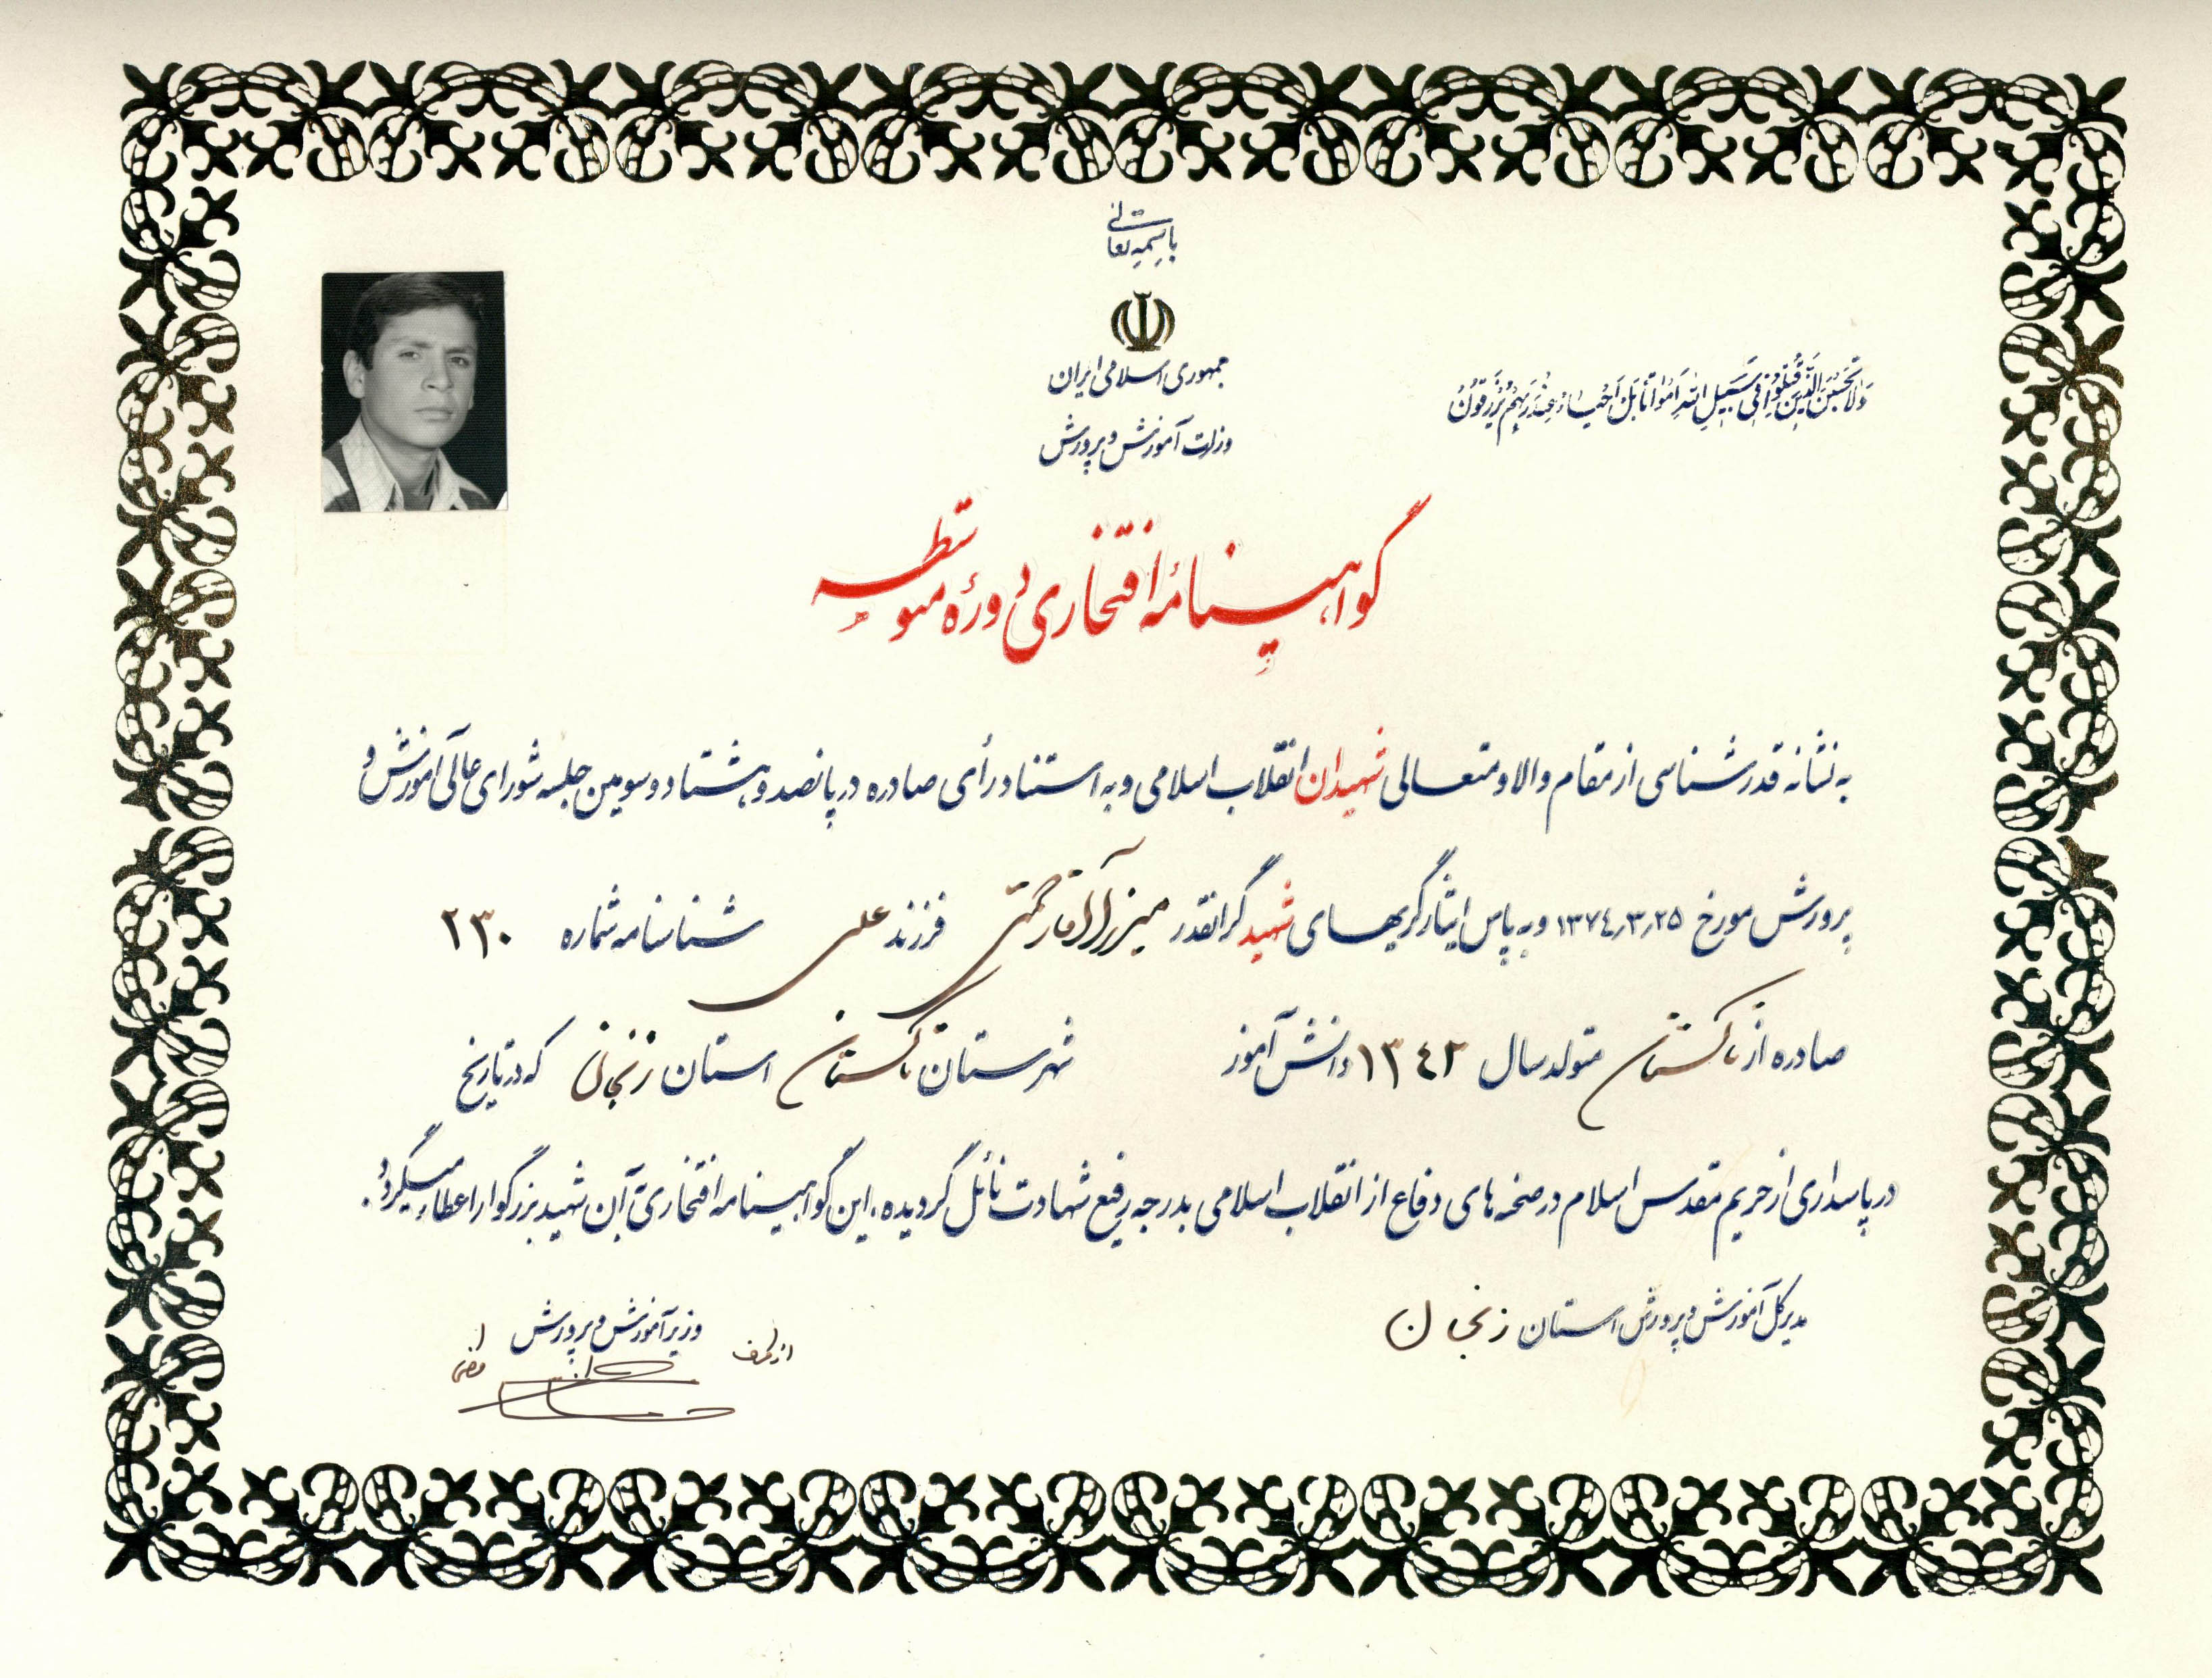 باسمه تعالی
جمهوری اسلامی ایران
وزارت آموزش و پرورش
وَلا تَحْسَبَنَّ الَّذینَ قُتِلُوا فی سَبیلِ اللهِ اَمْواتاً بَلْ اَحْیاءٌ عِنْدَ رَبِّهِمْ یُرْزَقُونَ
گواهینامهٔ افتخاری دورهٔ متوسطه
به نشانه قدرشناسی از مقام والا و متعالی شهیدان انقلاب اسلامی و به استناد رأی صادره در پانصد و هشتاد و سومین جلسه شورای عالی آموزش و
پرورش مورخ ۱۳۷۴٫۳٫۲۵ و به پاس ایثارگریهای شهید گرانقدر میرزاآقا رحمتی فرزند علی شناسنامه شماره ۲۳۰
صادره از تاکستان متولد سال ۱۳۴۳ دانش آموز شهرستان تاکستان استان زنجان که در تاریخ
در پاسداری از حریم مقدس اسلام در صحنه های دفاع از انقلاب اسلامی بدرجه رفیع شهادت نائل گردیده، این گواهینامه افتخاری به آن شهید بزرگوار اعطاء میگردد.
مدیرکل آموزش و پرورش استان زنجان
از طرف وزیر آموزش و پرورش